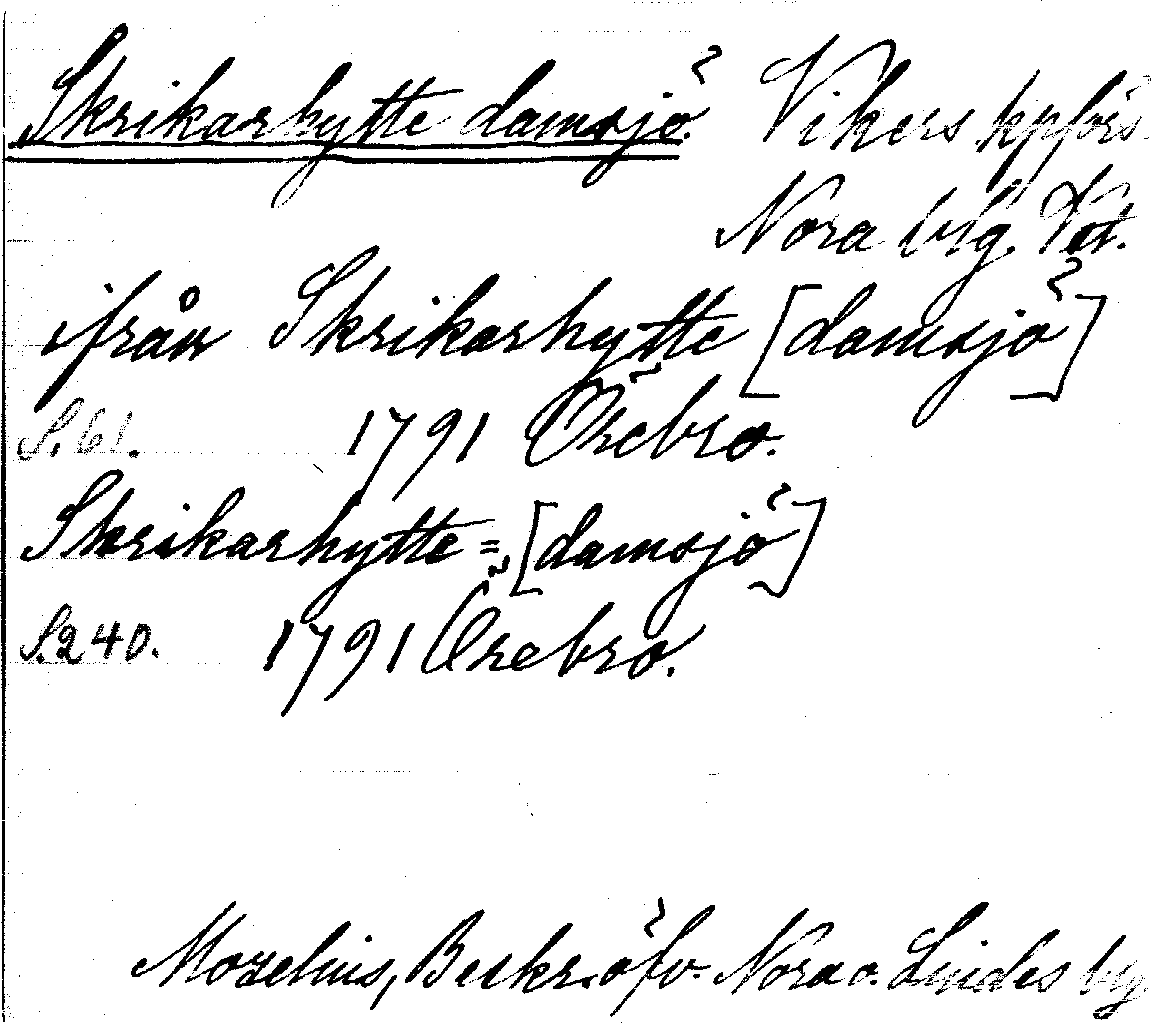 Skrikarhytte damsjö. Vikers kpförs.
Nora brg. Vst.
ifrån Skrikarhytte [damsjö]
S. 61. 1791 Örebro.
Skrikarhytte = [damsjö]
S. 240. 1791 Örebro.
Beskr. öfv. Nora o. Lindes brg.